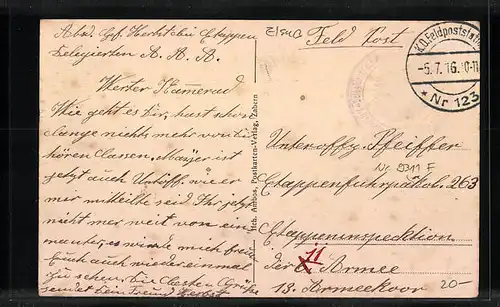 Abs. Gef. Herbst bei Etappen
Delegierten A. A. A.
Werter Kamerad
Wie geht es Dir, hast schon
lange nichts mehr von Dir
hören lassen. Mayer ist
jetzt auch Untoff. wie er
mir mitteilte seid Ihr jetzt
nicht mer weit von ein-
mauter, es würde mich freuen
Euch auch wieder einmal
zu sehen. Die besten Grüße
sendet Dein Freund Herbst
Verlag, Zabern
Feld Post
K.D. Feldpoststation
-5.7.16. 10-11
* Nr 123
Unteroffz. Pfeiffer
Nr. F
Etappenfuhrparkkol. 263
Etappeninspektion
11
der Armee
13. Armeekoor
20-